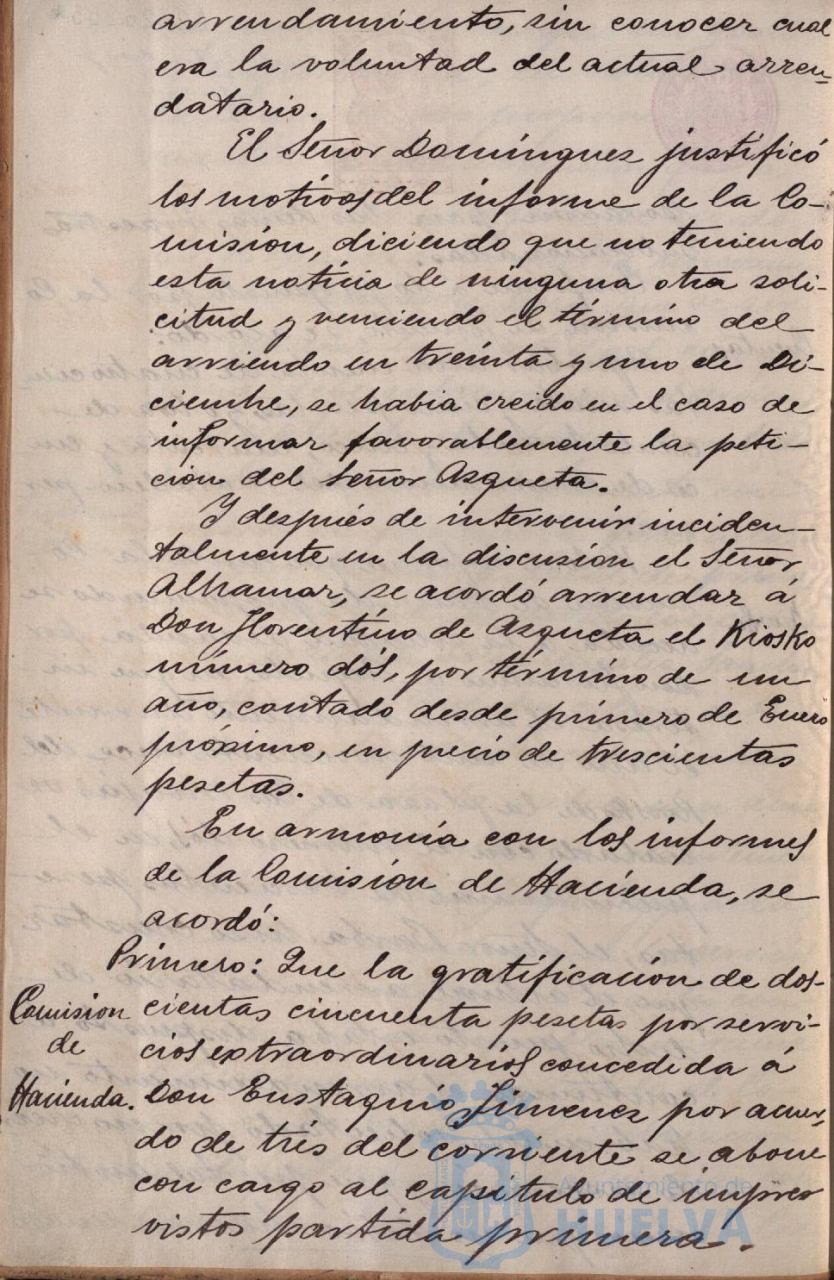 arrendamiento, sin conocer cual
era la voluntad del actual arren-
datario.
El Señor Domínguez justificó
los motivos del informe de la Co-
misión, diciendo que no teniendo
esta noticia de ninguna otra soli-
citud y venciendo el término del
arriendo en treinta y uno de Di-
ciembre, se habia creido en el caso de
informar favorablemente la peti-
cion del Señor Azqueta.
Y después de intervenir inciden-
talmente en la discusión el Señor
Alhamar, se acordó arrendar á
Don Florentino de Azqueta el Kiosko
número dós, por término de un
año, contado desde primero de Enero
próximo, en precio de trescientas
pesetas.
En armonía con los informes
de la Comisión de Hacienda, se
acordó:
Primero: Que la gratificación de dos-
Comision
de
Hacienda.
cientas cincuenta pesetas por servi-
cios extraordinarios concedida á
Don Eustaquio Jimenez por acuer-
do de trés del corriente se abone
con cargo al capítulo de impre-
vistos partida primera.
Ayuntamiento de
HUELVA